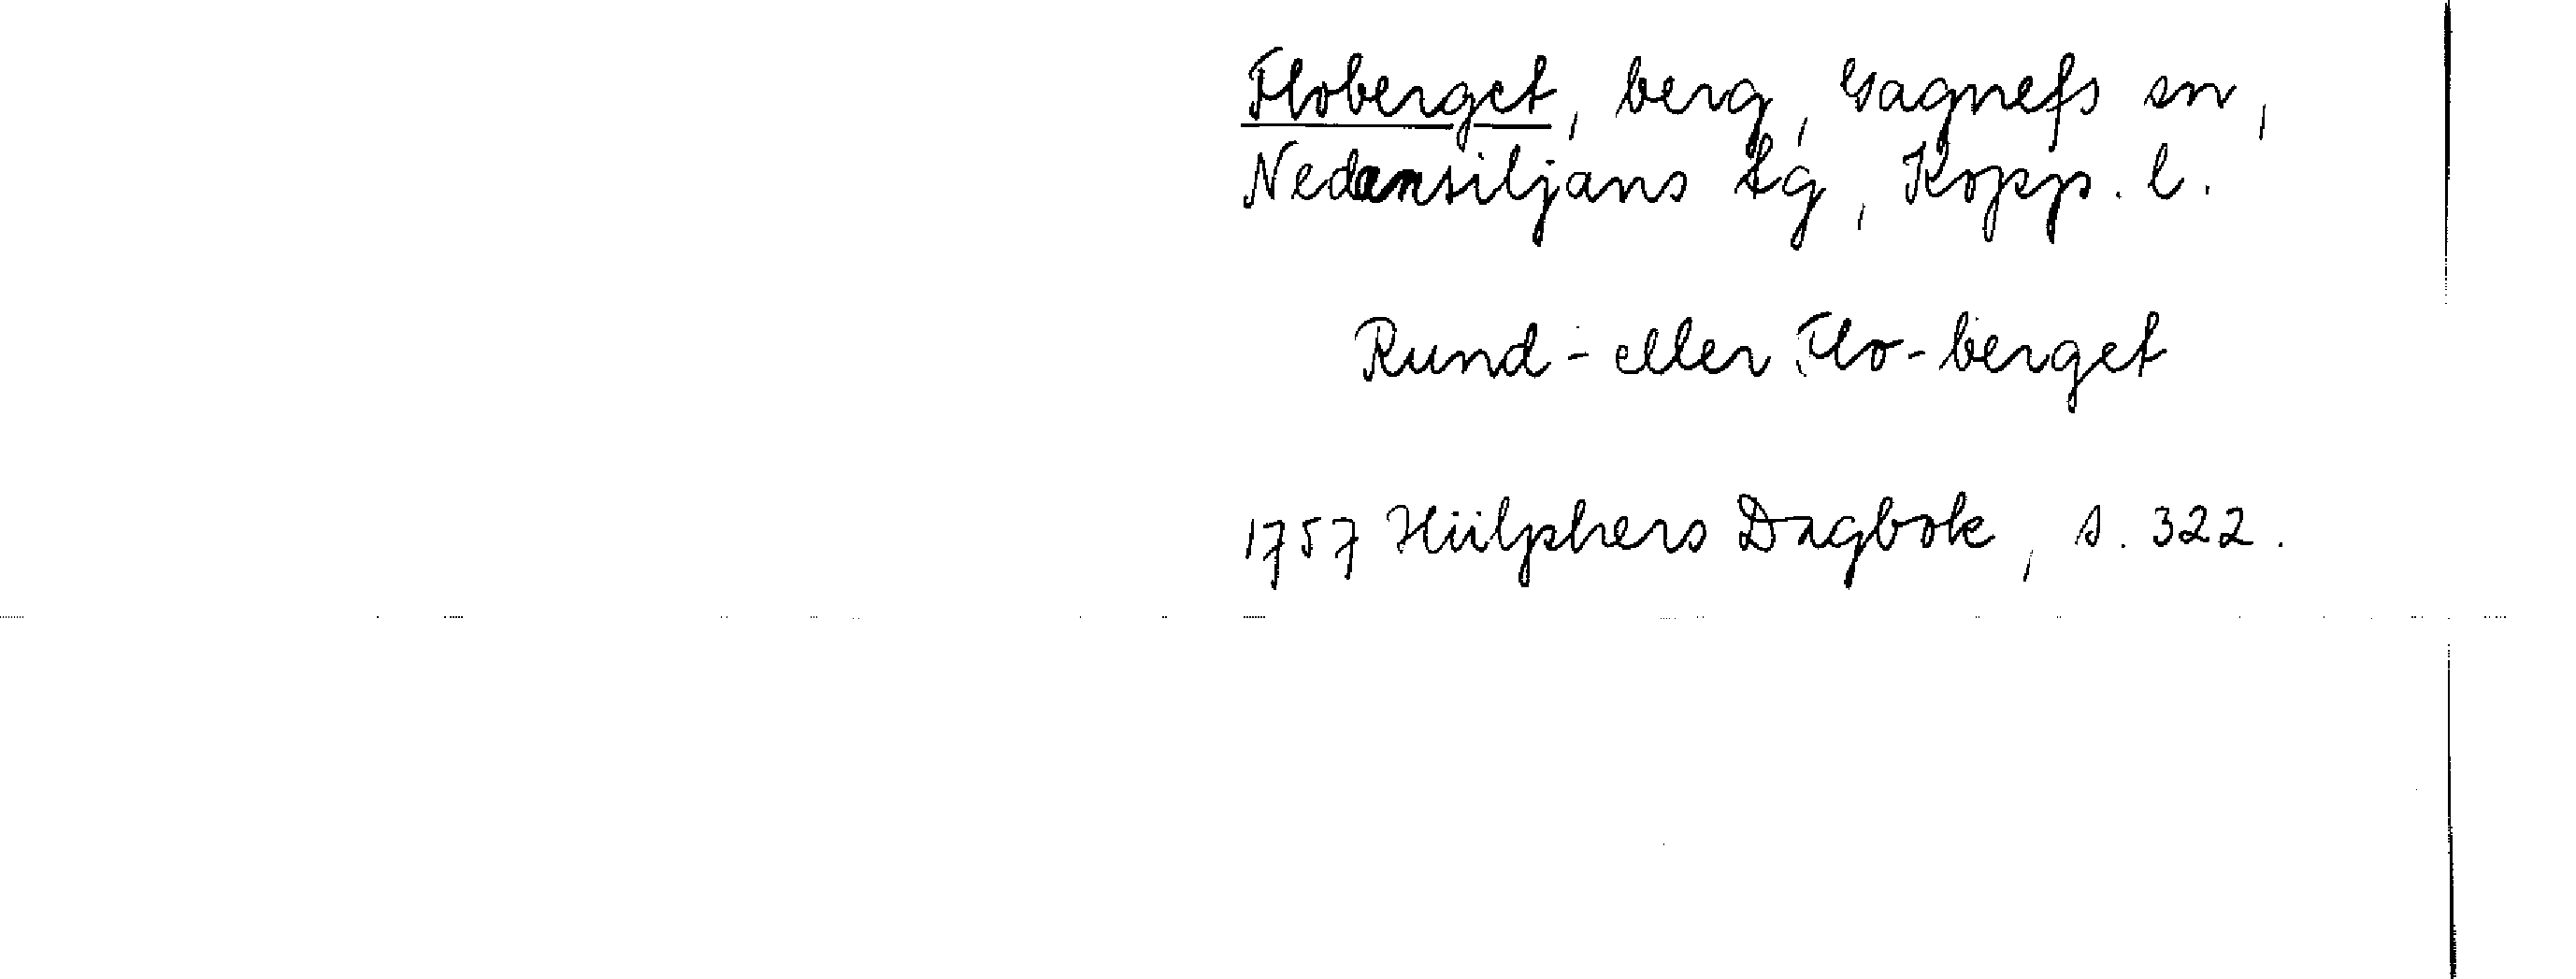 Floberget, berg, Gagnefs sn,
Nedansiljans tg, Kopp. l.
Rund- eller Flo-berget
1757 Hülphers Dagbok, s. 322.